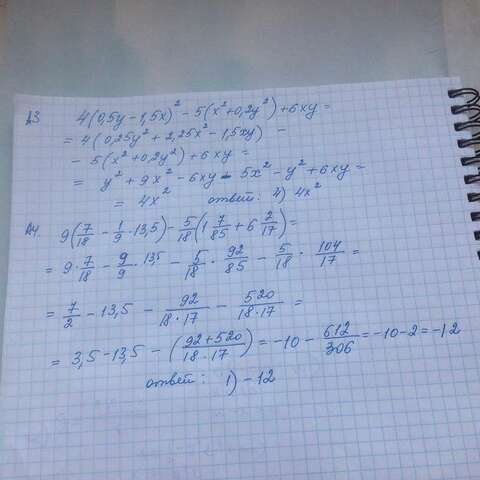 А3 4(0,5y-1,5x)² - 5(x²+0,2y²)+6xy =
= 4(0,25y² + 2,25x² - 1,5xy) -
- 5(x²+0,2y²)+6xy =
= y² + 9x² - 6xy - 5x² - y² + 6xy =
= 4x² ответ: 4) 4x²
А4. 9(7/18 - 1/9 · 13,5) - 5/18(1 7/85 + 6 2/17) =
= 9 · 7/18 - 9/9 · 13,5 - 5/18 · 92/85 - 5/18 · 104/17 =
= 7/2 - 13,5 - 92/(18·17) - 520/(18·17) =
= 3,5 - 13,5 - ((92+520)/(18·17)) = -10 - 612/306 = -10-2 = -12
ответ: 1) -12